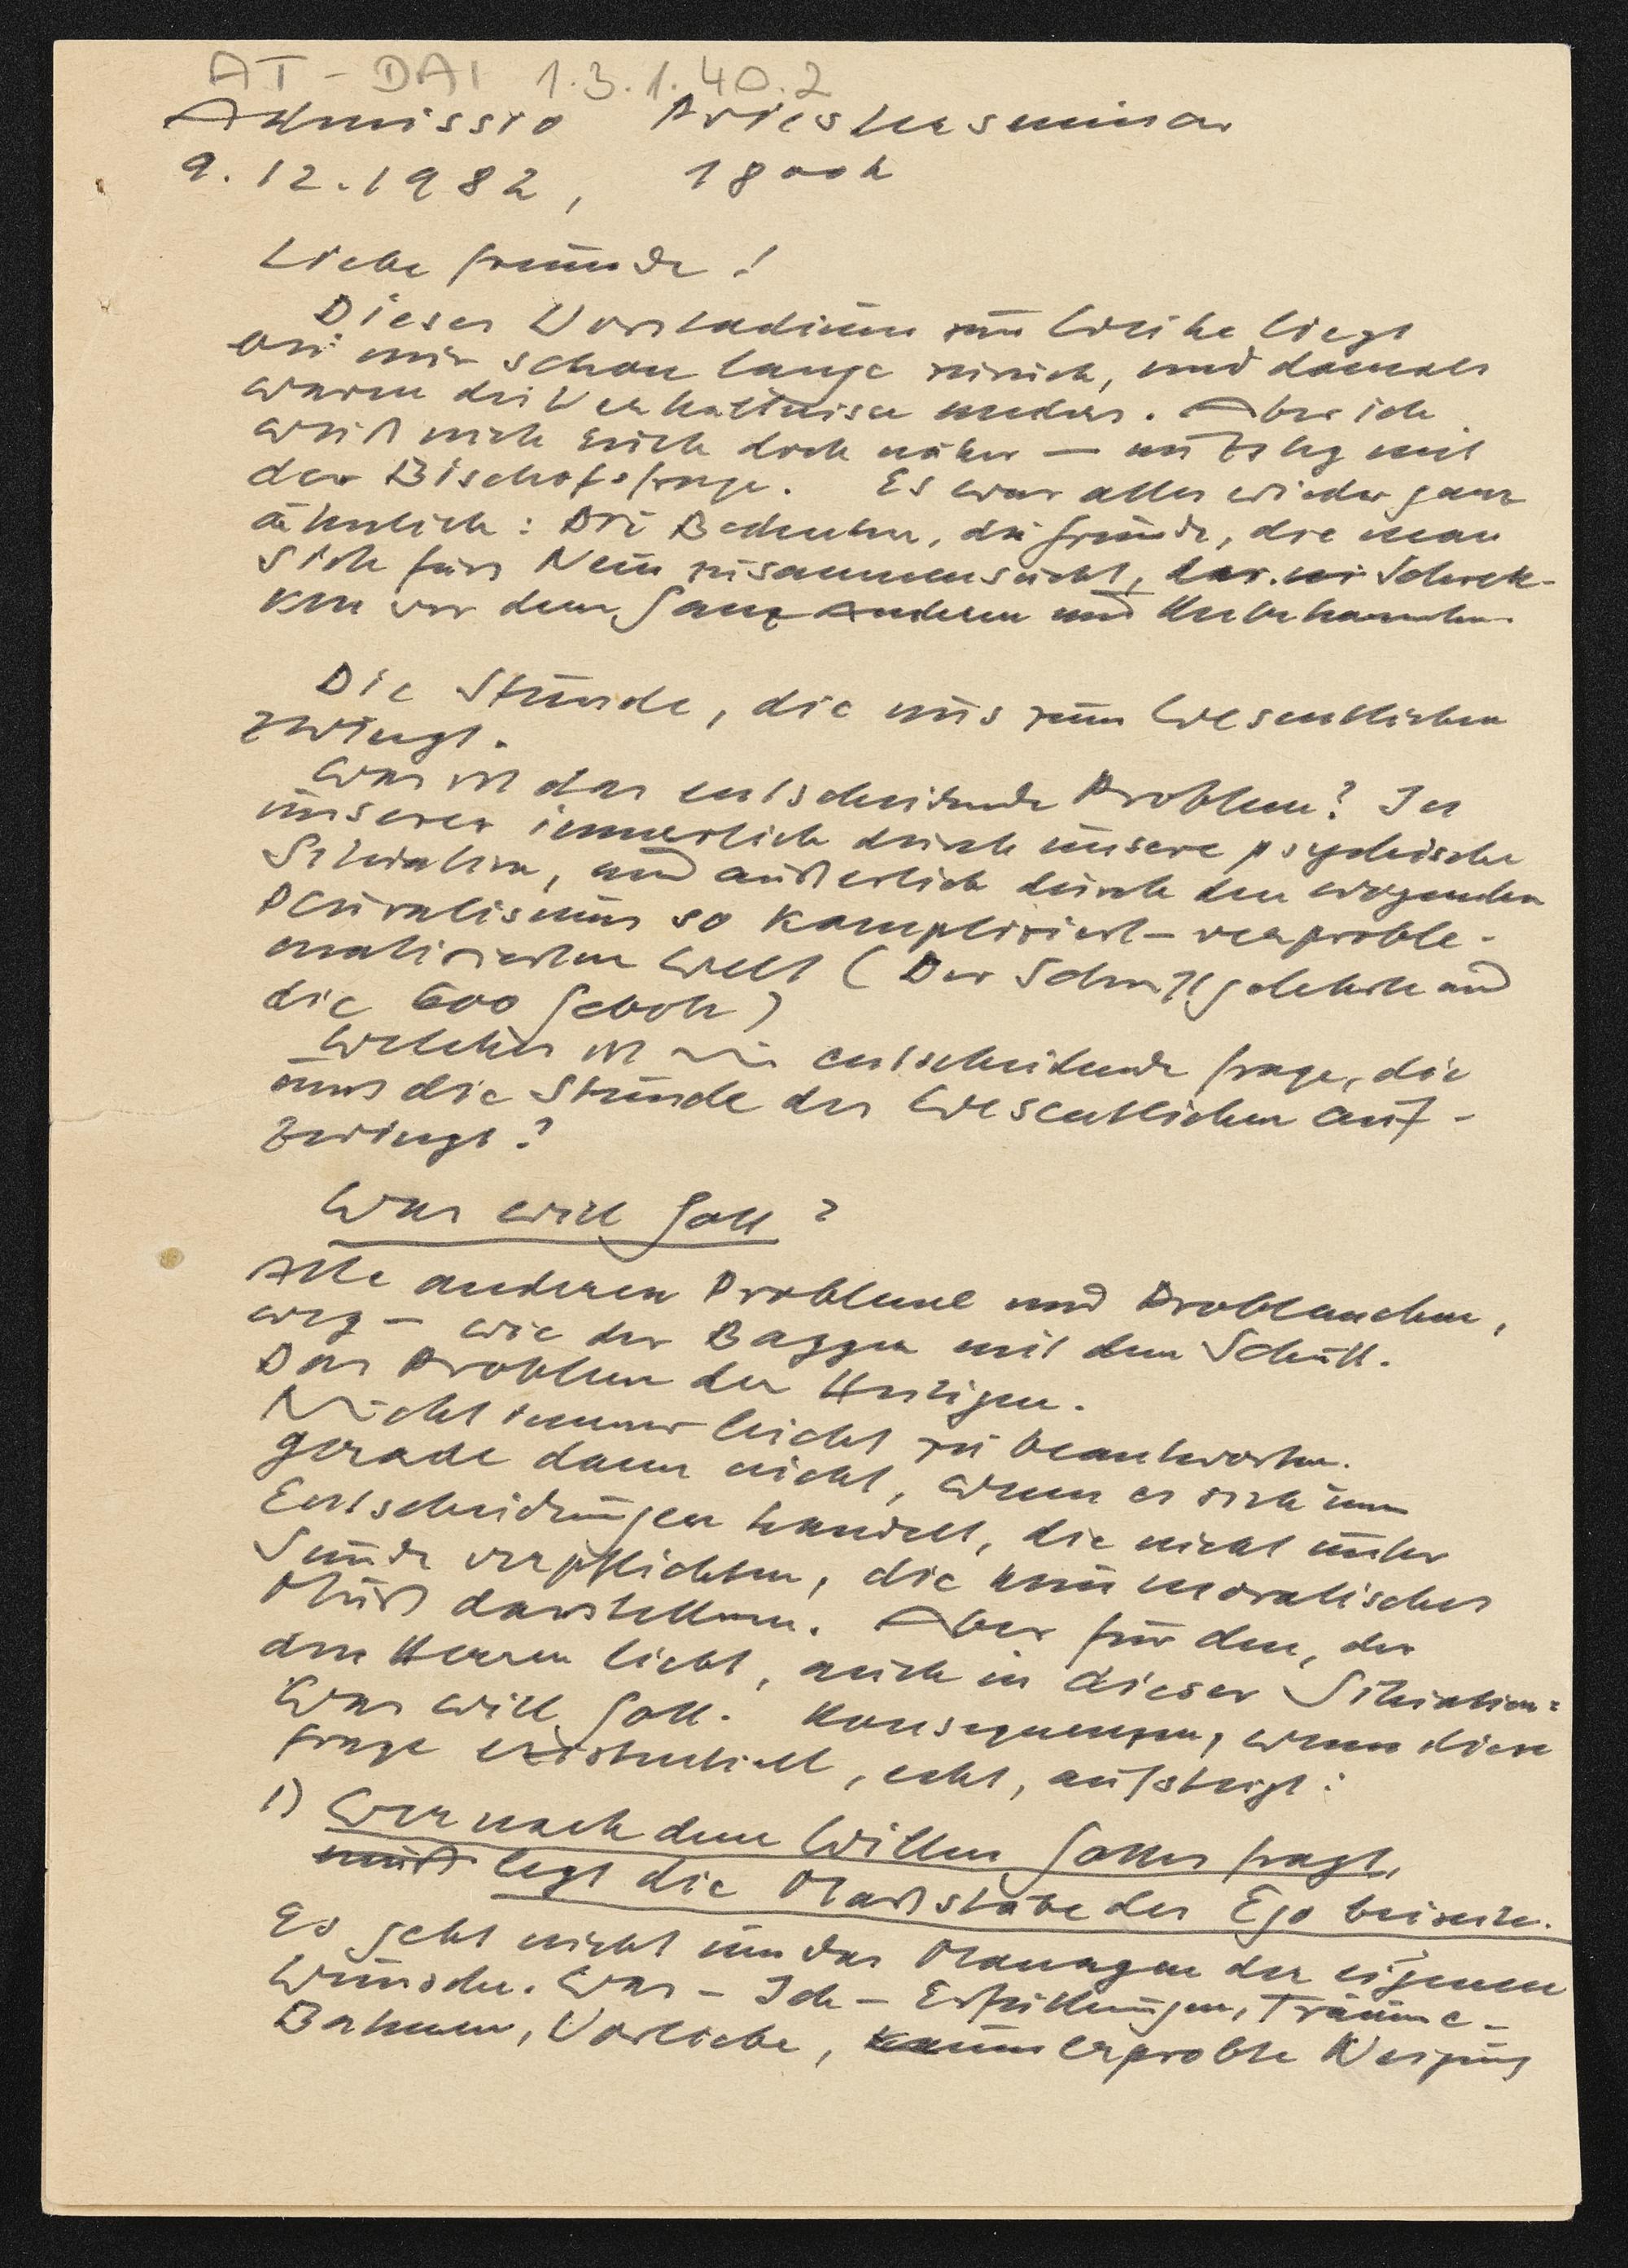 AT - DAI 1.3.1.40.2
Admissio Priesterseminar
9.12.1982, 18 00 h
Liebe Freunde!
Dieses Vorstadium zur Weihe liegt
bei mir schon lange zurück, und damals
waren die Verhältnisse anders. Aber ich
weiß mich Euch doch näher — im Zshg mit
der Bischofsfrage. Es war alles wieder ganz
ähnlich: Die Bedenken, die Gründe, die man
sich fürs Nein zusammensucht, Schrek-
ken vor dem Ganz Anderen und Unbekannten.
Die Stunde, die uns zum Wesentlichen
zwingt.
Was ist das entscheidende Problem? In
unserer innerlich durch unsere psychische
Situation, und äußerlich durch den wogenden
Pluralismus so kompliziert-verproble-
matisierten Welt (Der Schriftgelehrte und
die 600 Gebote)
Welches ist die entscheidende Frage, die
uns die Stunde des Wesentlichen auf-
zwingt?
Was will Gott?
Alle anderen Probleme und Problemchen,
weg — wie der Bagger mit dem Schutt.
Das Problem der Heiligen.
Nicht immer leicht zu beantworten.
gerade dann nicht, wenn es sich um
Entscheidungen handelt, die nicht unter
Sünde verpflichten, die kein moralisches
Muß darstellen. Aber für den, der
den Herrn liebt, auch in dieser Situation:
Was will Gott. Konsequenzen, wenn diese
Frage existentiell, echt, aufsteigt:
1) Wer nach dem Willen Gottes fragt,
muß legt die Maßstäbe des Ego beiseite.
Es geht nicht um das Managen der eigenen
Wünsche. Was - Ich - Erfüllungen, Träume -
Bahnen, Vorliebe, kaum erprobte Neigung